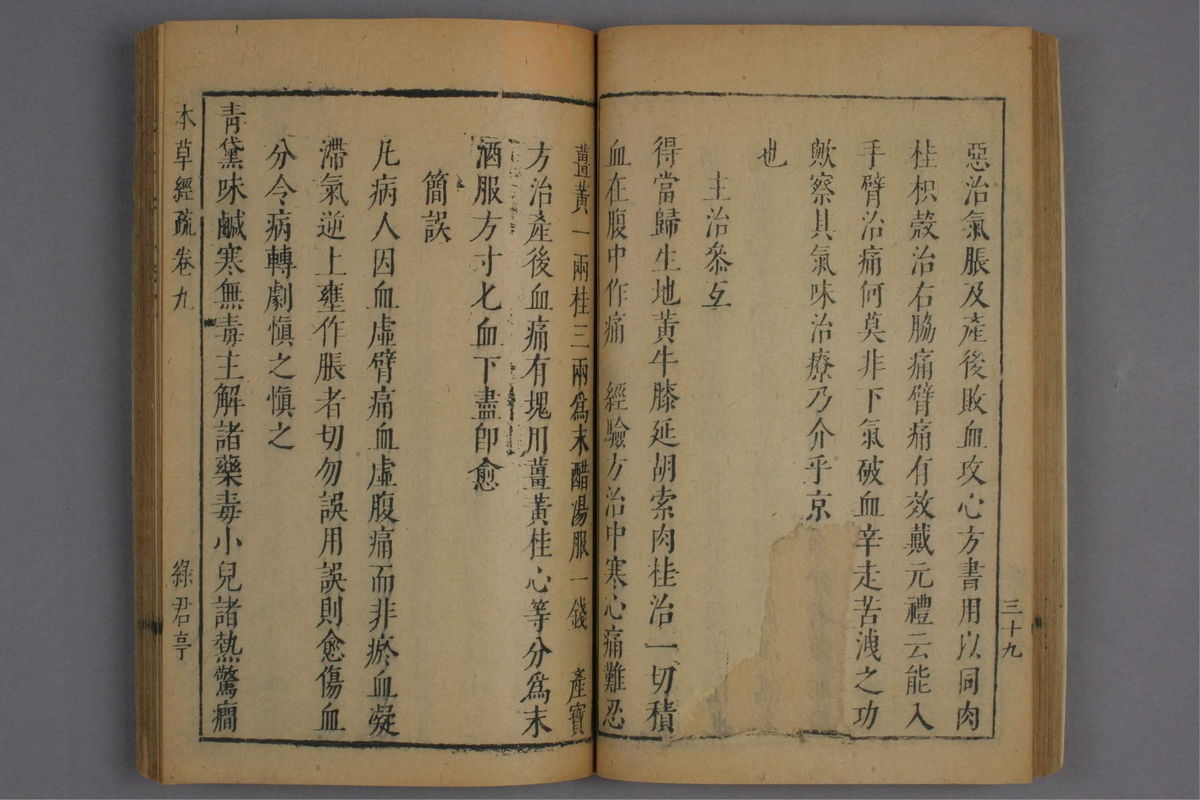 三十九
惡治氣脹及產後敗血攻心方書用以同肉
桂枳殼治右脇痛臂痛有效戴元禮云能入
手臂治痛何莫非下氣破血辛走苦洩之功
歟察其氣味治療乃介乎京
也
主治參互
得當歸生地黃牛膝延胡索肉桂治一切積
血在腹中作痛 經驗方治中寒心痛難忍
薑黃一兩桂三兩爲末醋湯服一錢 產寶
方治產後血痛有塊用薑黃桂心等分爲末
酒服方寸匕血下盡卽愈
簡誤
凡病人因血虛臂痛血虛腹痛而非瘀血凝
滯氣逆上壅作脹者切勿誤用誤則愈傷血
分令病轉劇愼之愼之
靑黛味鹹寒無毒主解諸藥毒小兒諸熱驚癎
本草經疏卷九
綠君亭